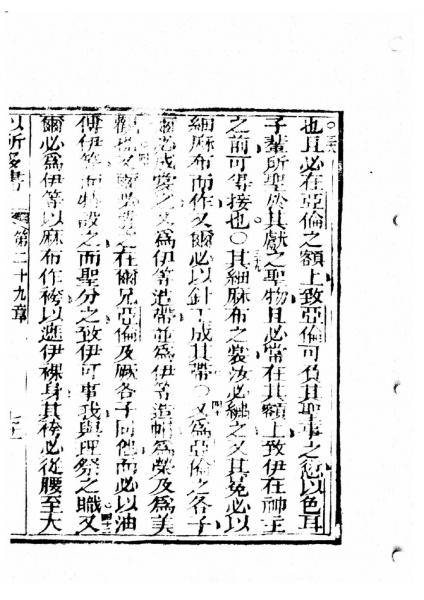 ○也且必在亞倫之額上致亞倫可負且聖事之愆以色耳
子輩所聖於其獻之聖物且必常在其額上致伊在神主
之前可得接也○三十九其細麻布之裳汝必繡之又其冕必以
細麻布而作又爾必以針工成其帶○四十又為亞倫之各子
爾必成裳之又為伊等造帶並為伊等造帽為榮及為美
又爾必之在爾兄亞倫及厥各子同他而必以油
傅伊等而特設之而聖分之致伊可事我與理祭之職○又
爾必為伊等以麻布作袴以遮伊裸身其袴必從腰至大
以所多書 第二十九章 七十